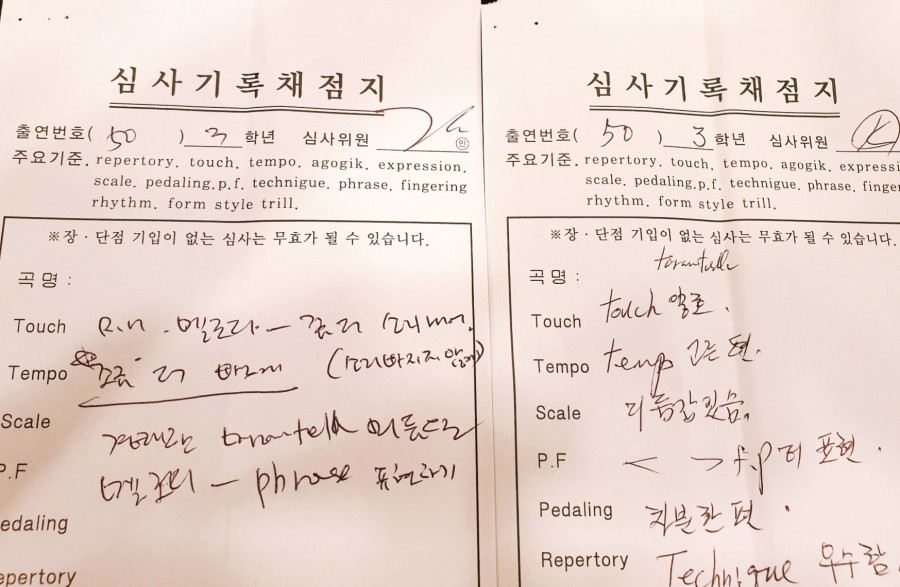 심사기록채점지
출연번호( 50 ) 3 학년 심사위원 인
주요기준. repertory. touch. tempo. agogik. expression.
scale. pedaling.p.f. technigue. phrase. fingering
rhythm. form style trill.
※장·단점 기입이 없는 심사는 무효가 될 수 있습니다.
곡명 :
Touch R.H. 멜로디 - 좀더 소리내어.
Tempo "조금" 더 빠르게 (소리빠지지않게)
Scale
tarantella 리듬으로
P.F
멜로디 - phrase 표현하기
edaling
epertory
심사기록채점지
출연번호( 50 ) 3 학년 심사위원 K
주요기준. repertory. touch. tempo. agogik. expression
scale. pedaling.p.f. technigue. phrase. finger
rhythm. form style trill.
※장·단점 기입이 없는 심사는 무효가 될 수 있습니다.
곡명 : tarantella
Touch touch 양호.
Tempo tempo 고른 편.
Scale 리듬감있음.
P.F < > f.p 더 표현.
Pedaling 차분한 편.
Repertory Technique 우수함.